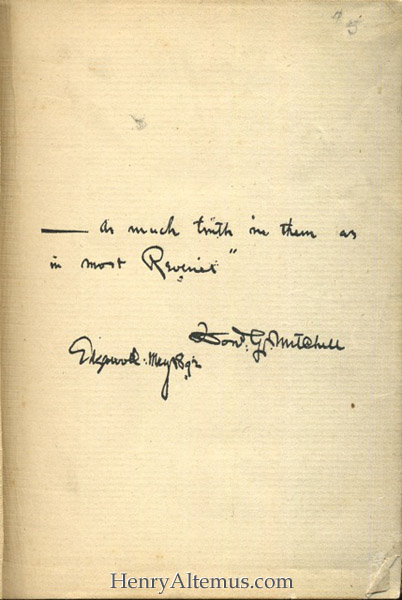 — as much truth in them as
in most Reveries"
Dond. G. Mitchell
Edgewood. May 1892
HenryAltemus.com